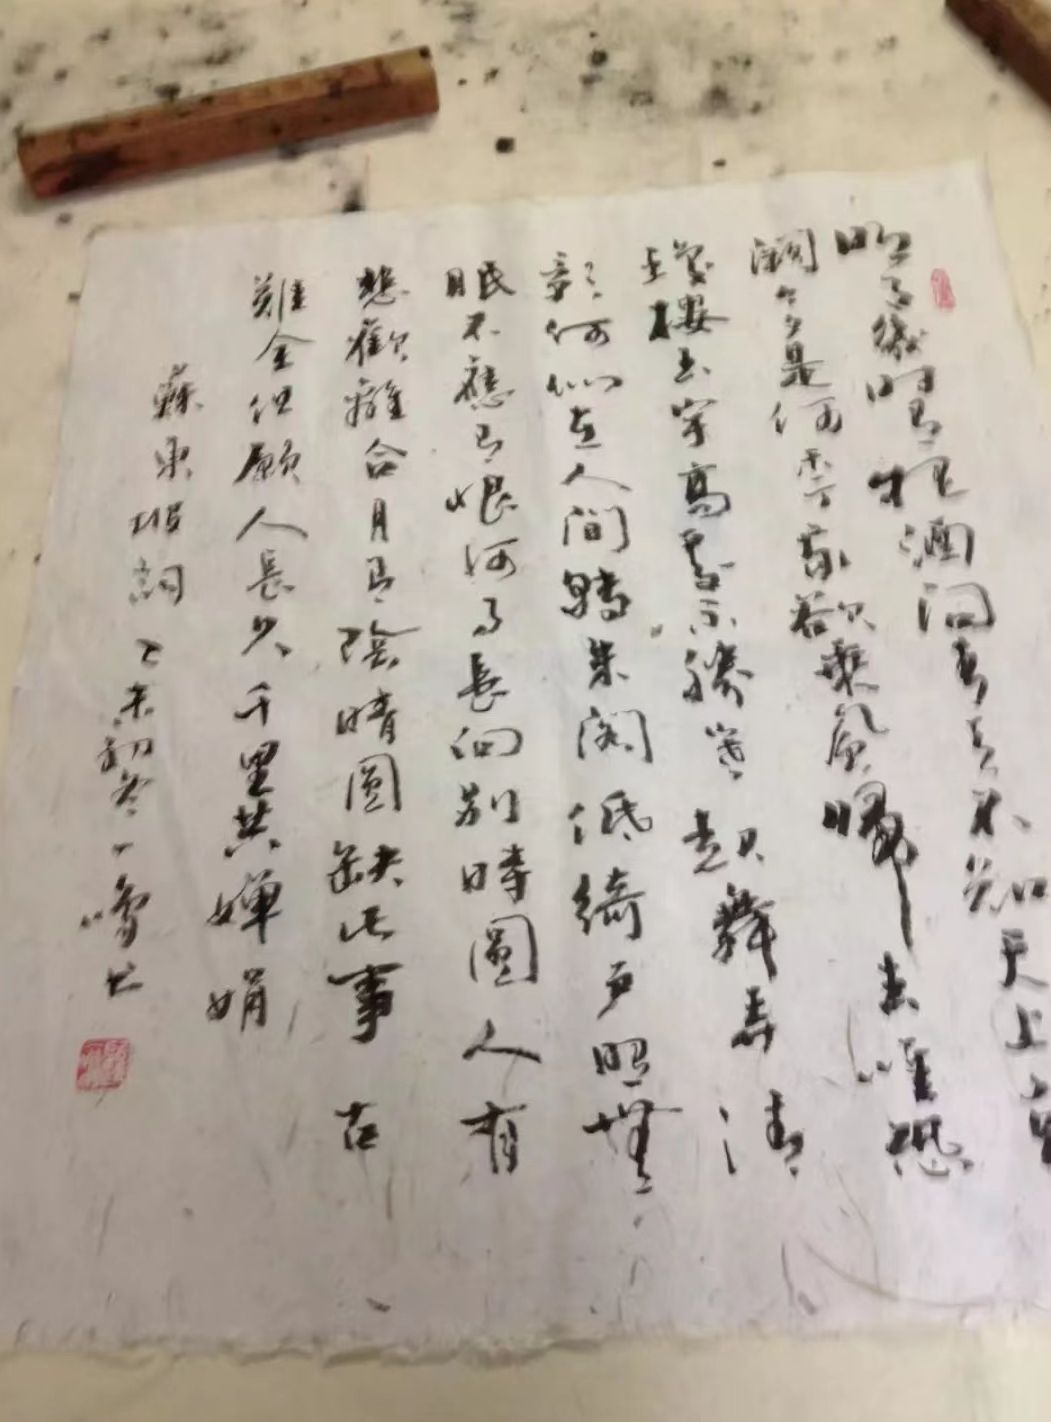 明月幾時有把酒問青天不知天上宮
闕今夕是何年我欲乘風歸去唯恐
瓊樓玉宇高處不勝寒起舞弄清
影何似在人間轉朱閣低綺戶照無
眠不應有恨何事長向別時圓人有
悲歡離合月有陰晴圓缺此事古
難全但願人長久千里共嬋娟
蘇東坡詞乙未初冬一鳴書